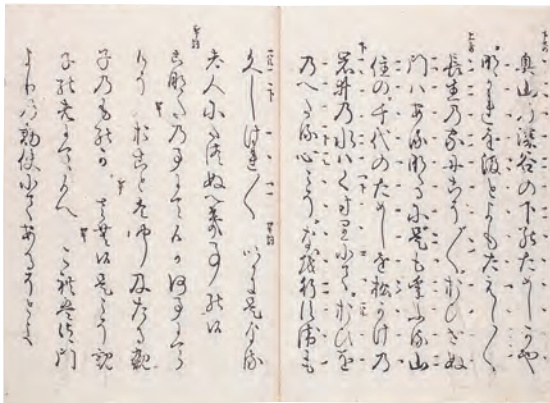 奥山の深谷の下のためしかや
流れを汲とよもたえし〳〵
長生の家にこそ〳〵おひせぬ
門ハあるなるに是も年ふる山
住の千代のためしを松かけの
岩井の水ハくすりにておひを
のへたる心こそ猶行すゑも
久しけれ〳〵 いかに是なる
老人にたつぬへき事の候
こなたの事にて候か何事にて候
そ おことハ聞及たる親
子のものか さむ候是こそ親
子の者にて候へ これハ御門
よりの勅使にてあるそとよ